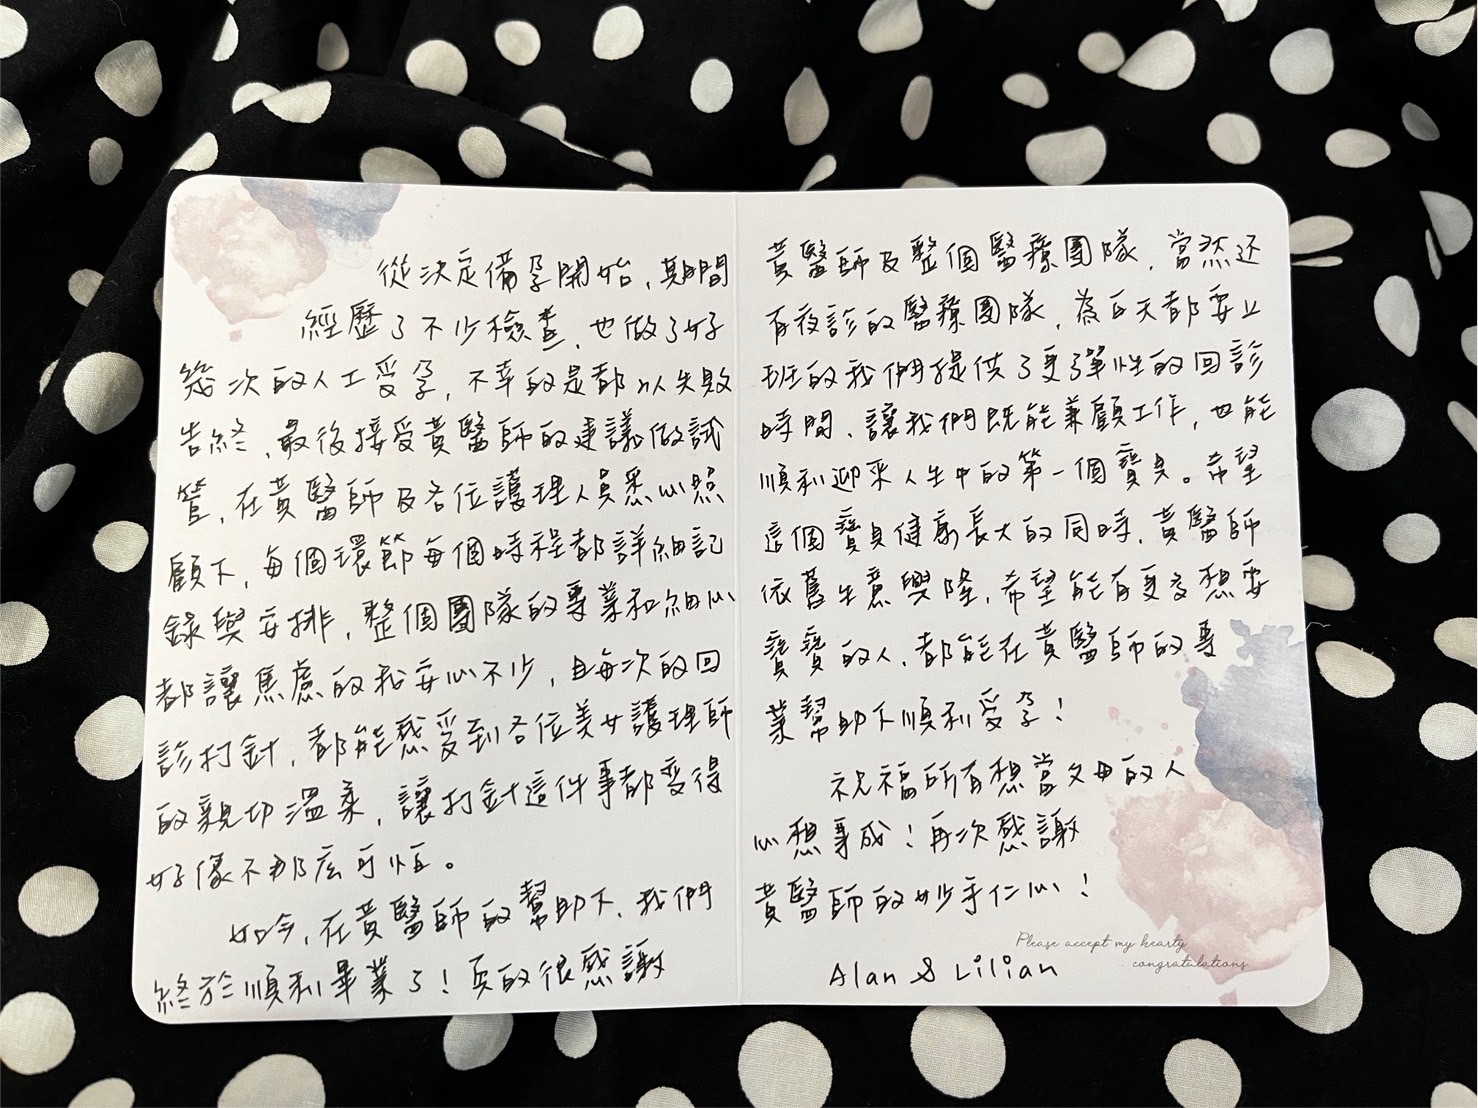 從決定備孕開始,期間
經歷了不少檢查,也做了好
幾次的人工受孕,不幸的是都以失敗
告終,最後接受黃醫師的建議做試
管,在黃醫師及各位護理人員悉心照
顧下,每個環節每個時程都詳細記
錄與安排,整個團隊的專業和細心
都讓焦慮的我安心不少,且每次的回
診打針,都能感受到各位美女護理師
的親切溫柔,讓打針這件事都變得
好像不那麼可怕。
如今,在黃醫師的幫助下,我們
終於順利畢業了!真的很感謝
黃醫師及整個醫療團隊,當然还
有夜診的醫療團隊,為白天都要上
班的我們提供了更彈性的回診
時間,讓我們既能兼顧工作,也能
順利迎來人生中的第一個寶貝。希望
這個寶貝健康長大的同時,黃醫師
依舊生意興隆,希望能有更多想要
寶寶的人,都能在黃醫師的專
業幫助下順利受孕!
祝福所有想當父母的人
心想事成!再次感謝
黃醫師的妙手仁心!
Please accept my hearty
congratulations
Alan & Lilian